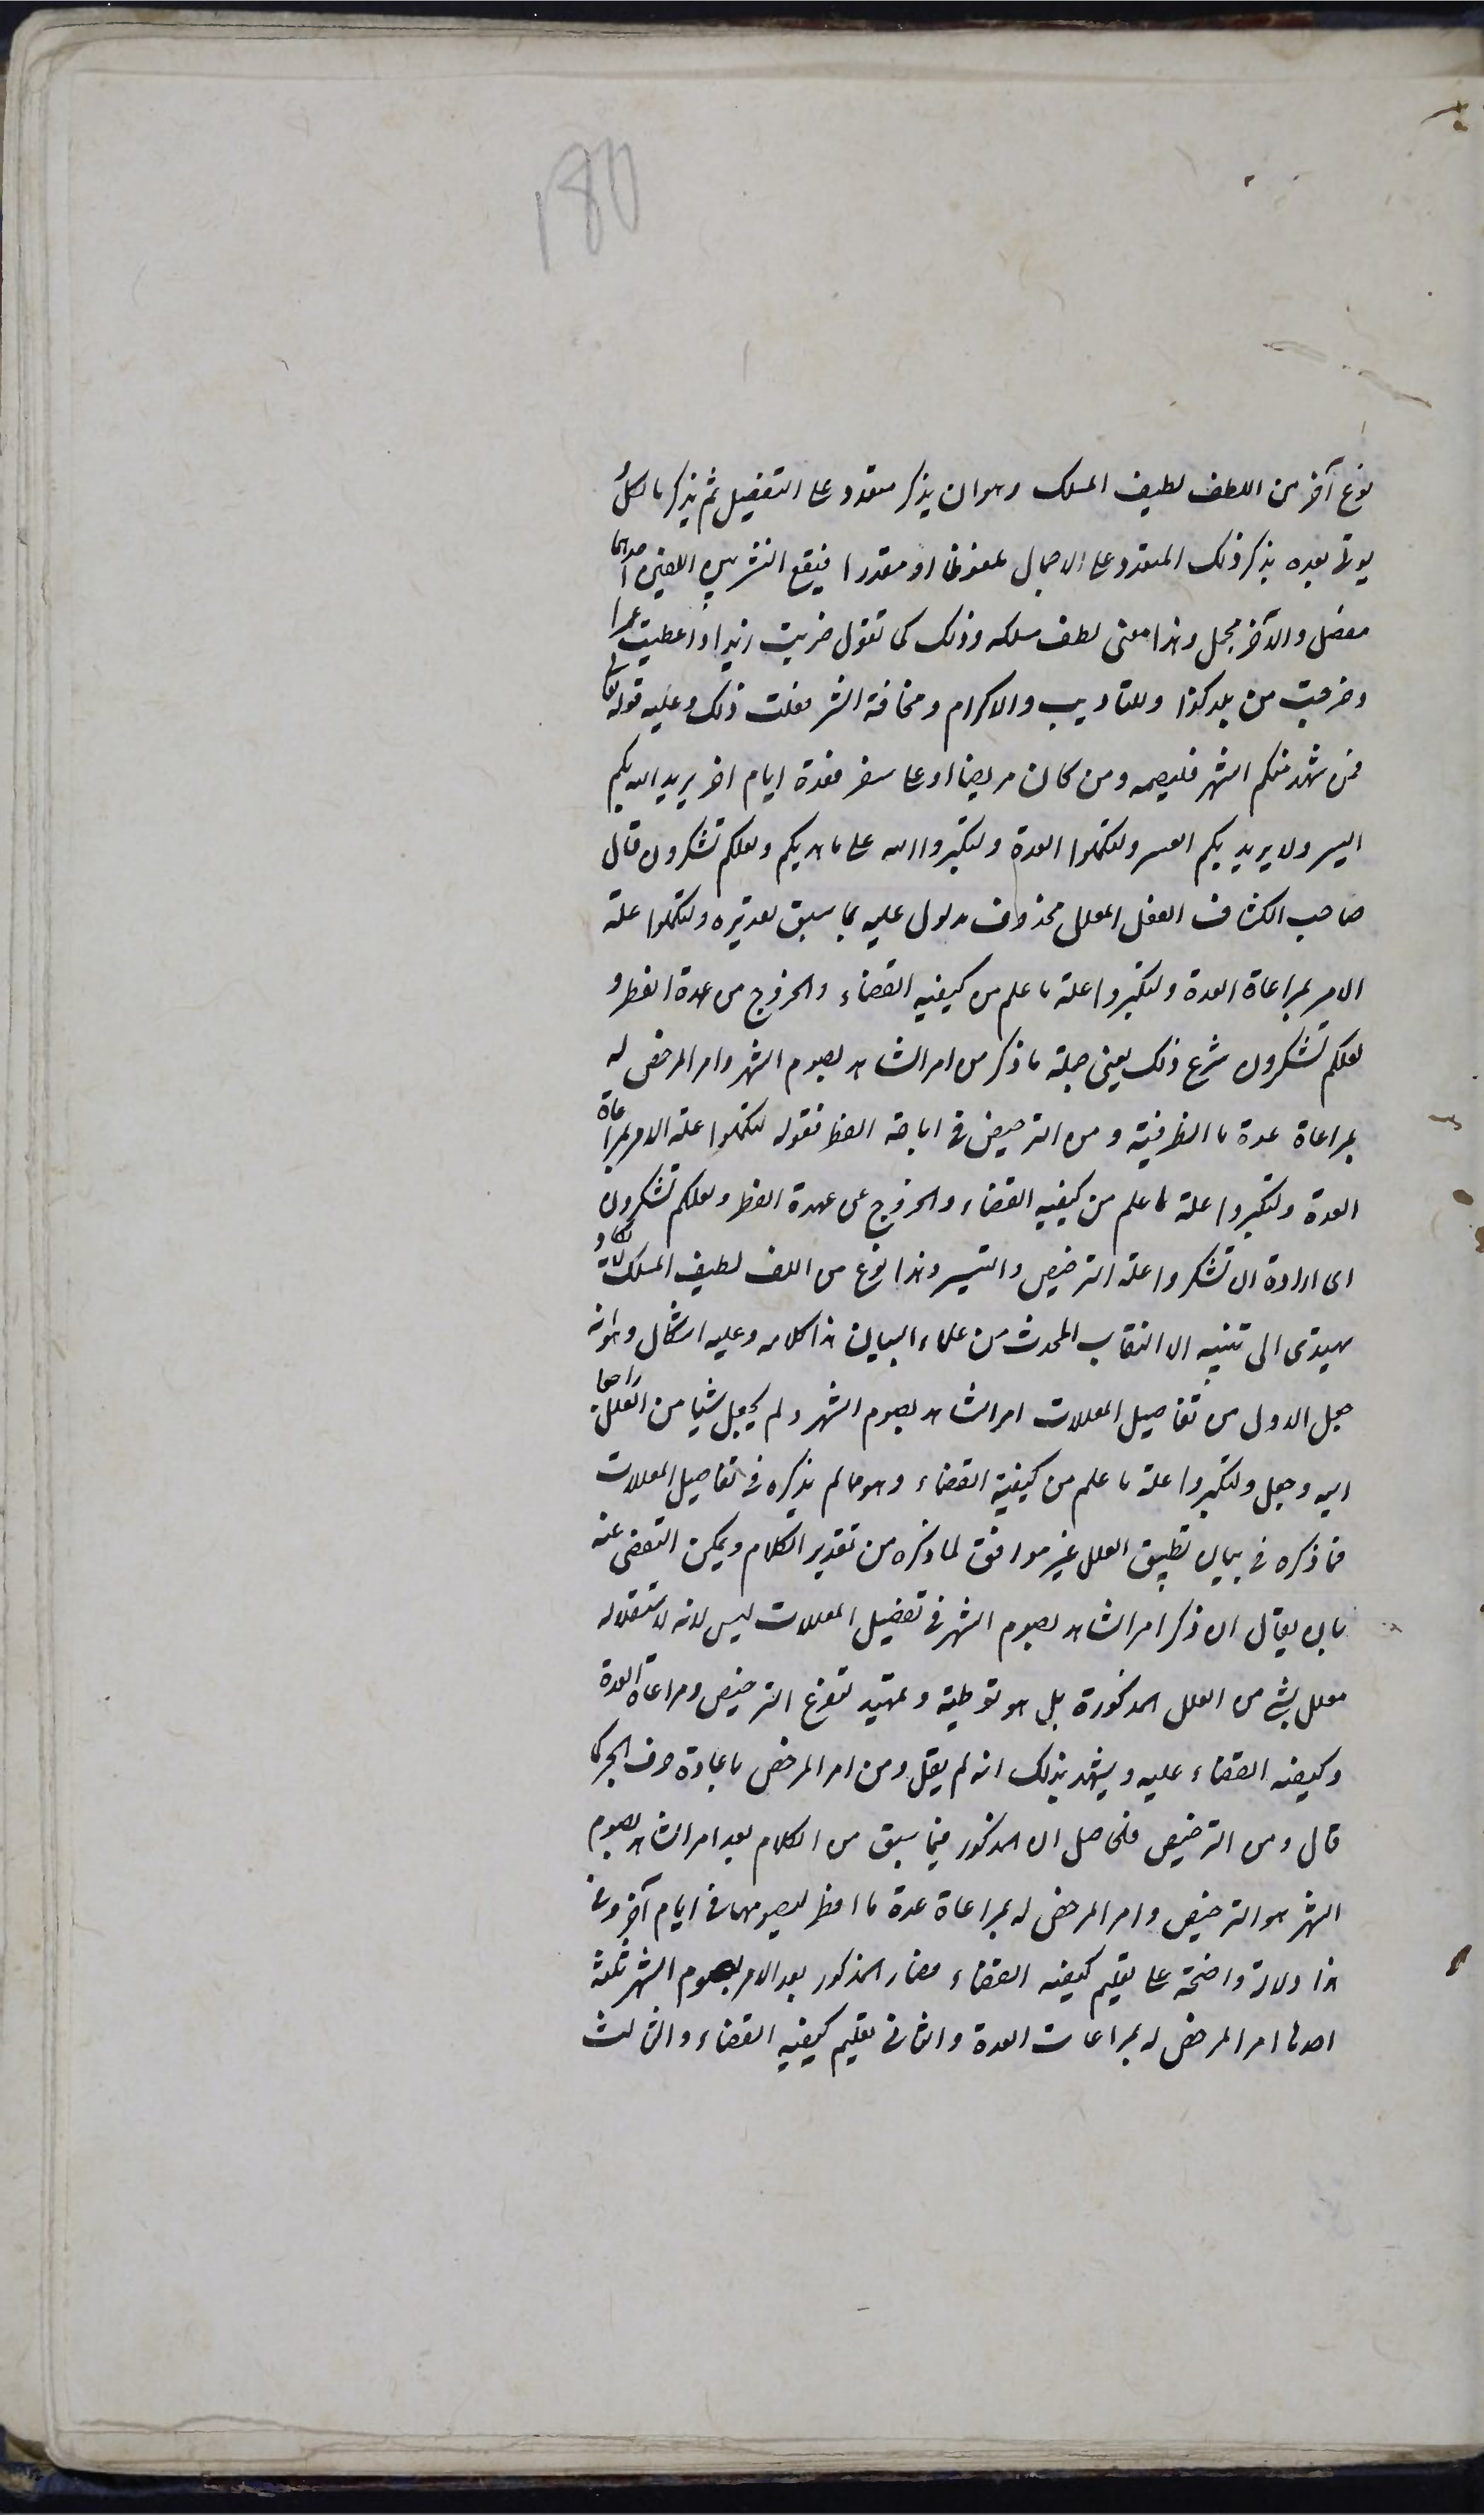 180
نوع آخر من اللطف لطيف المسلك وهو ان يذكر متعدد على التفصيل ثم يذكر ما لكل
يوتى بعده بذكر ذلك المتعدد على الاجمال ملفوظا او مقدرا فيقع النشر بين اللفين احدهما
مفصل والآخر مجمل وهذا معنى لطف مسلكه وذلك كما تقول ضربت زيدا واعطيت عمرا
وخرجت من بلد كذا وللتاديب والاكرام ومخافة الشر فعلت ذلك وعليه قوله تعالى
فمن شهد منكم الشهر فليصمه ومن كان مريضا او على سفر فعدة ايام اخر يريد الله بكم
اليسر ولا يريد بكم العسر ولتكملوا العدة ولتكبروا الله على ما هديكم ولعلكم تشكرون قال
صاحب الكشاف الفعل المعلل محذوف مدلول عليه بما سبق تقديره ولتكملوا علة
الامر بمراعاة العدة ولتكبروا علة ما علم من كيفيه القضاء والخروج من عهدة الفطر و
لعلكم تشكرون شرع ذلك يعنى جملة ما ذكر من امر الشاهد بصوم الشهر وامر المرخص له
بمراعاة عدة ما افطر فيه ومن الترخيص فى اباحة الفطر فقوله لتكملوا علة الامر بمراعاة
العدة ولتكبروا علة ما علم من كيفيه القضاء والخروج عن عهدة الفطر ولعلكم تشكرون
اى ارادة ان تشكروا علة الترخيص والتيسير وهذا نوع من اللف لطيف المسلك لا يكاد
يهتدى الى تبينه الا النقاب المحدث من علماء البيان هذا كلامه وعليه اشكال وهو انه
جعل الاول من تفاصيل المعللات امر الشاهد بصوم الشهر ولم يجعل شيا من العلل راجعا
اليه وجعل ولتكبروا علة ما علم من كيفية القضاء وهو مما لم يذكره فى تفاصيل المعللات
فما ذكره فى بيان تطبيق العلل غير موافق لما ذكره من تقدير الكلام ويمكن التفصى عنه
بان يقال ان ذكر امر الشاهد بصوم الشهر فى تفصيل المعللات ليس لانه لاستقلاله
معلل بشئ من العلل المذكورة بل هو توطية وتمهيد لتفرع الترخيص ومراعاة العدة
وكيفيه القضاء عليه ويشهد بذلك انه لم يقل ومن امر المرخص باعادة حرف الجر كما
قال ومن الترخيص فالحاصل ان المذكور فيما سبق من الكلام بعد امر الشاهد بصوم
الشهر هو الترخيص وامر المرخص له بمراعاة عدة ما افطر ليصومها فى ايام آخر وفى
هذا دلالة واضحة على تعليم كيفيه القضاء فصار المذكور بعد الامر بصوم الشهر ثلثة
احدها امر المرخص له بمراعات العدة والثانى تعليم كيفيه القضاء والثالث